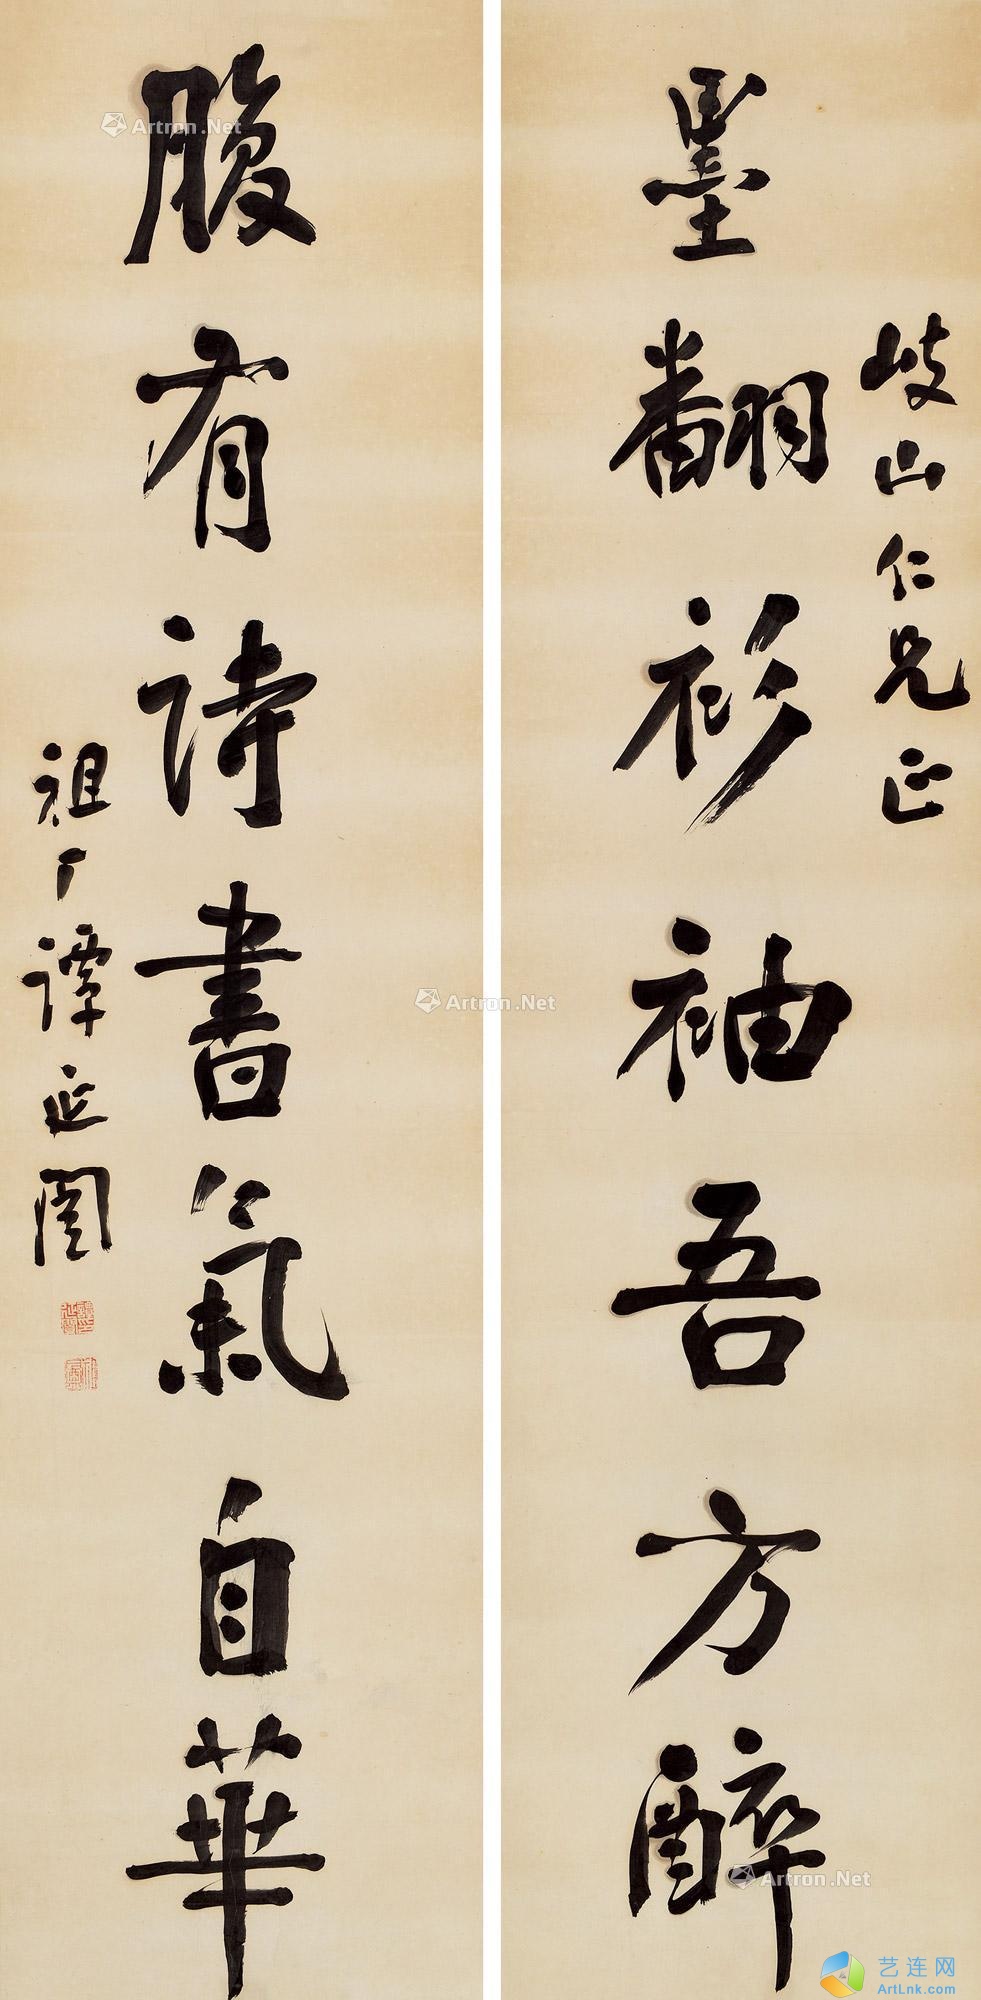 岐山仁兄正
墨翻衫袖吾方醉
腹有詩書氣自華
祖厂譚延闓
Artron.Net
Artron.Net
Artron.Net
艺连网
ArtLnk.com